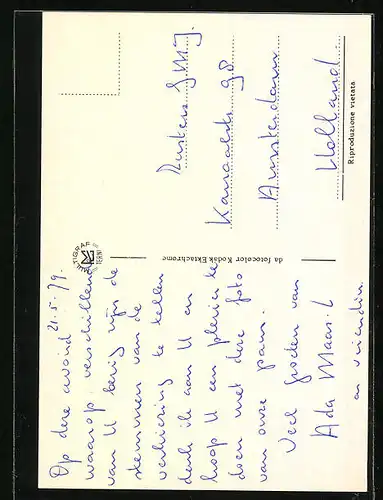 21.5.79.
Op deze avond
waarop verschillende
van U bezig zijn de
stemmen van de
verkiezing te tellen
denk ik aan U en
hoop U een plezier te
doen met deze foto
van onze paus.
Veel groeten van
Ada Maas
en vriendin.
MULTIGRAF
TERNI
da fotocolor Kodak Ektachrome
Zusters
Amsterdam
Holland.
Riproduzione vietata